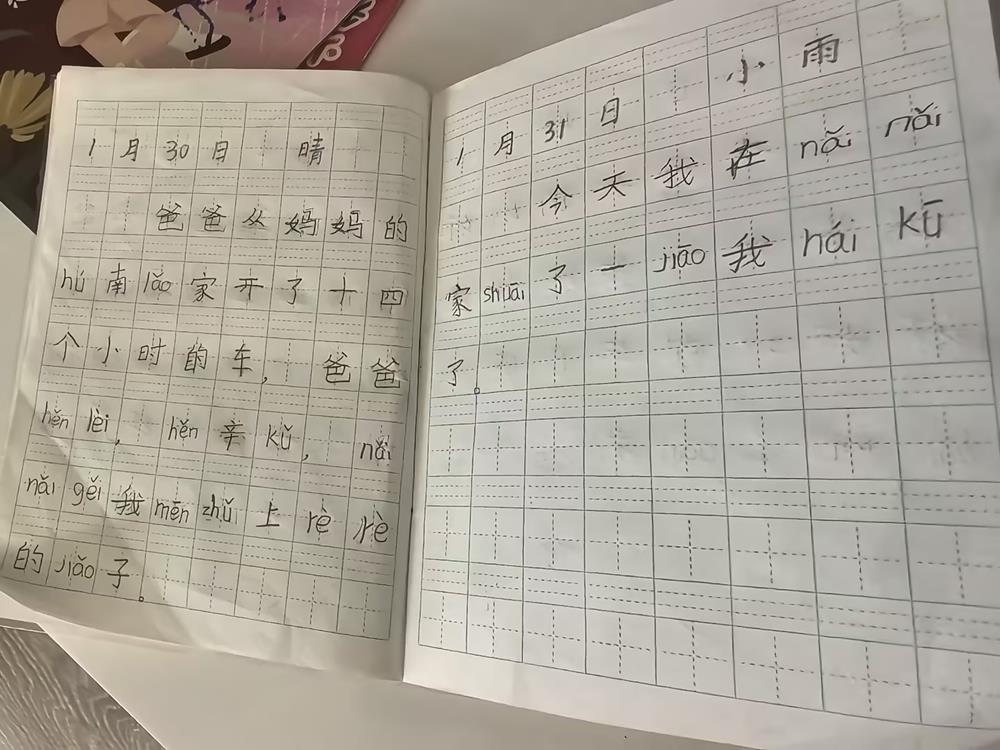 1月30日 晴
爸爸从妈妈的
hú南lǎo家开了十四
个小时的车, 爸爸
hěn lèi, hěn辛kǔ, nǎi
nǎi gěi我mēn zhǔ上rè rè
的jiǎo子。
1月31日 小雨
今天我在nǎi nǎi
家shuāi了一jiāo我hái kū
了。